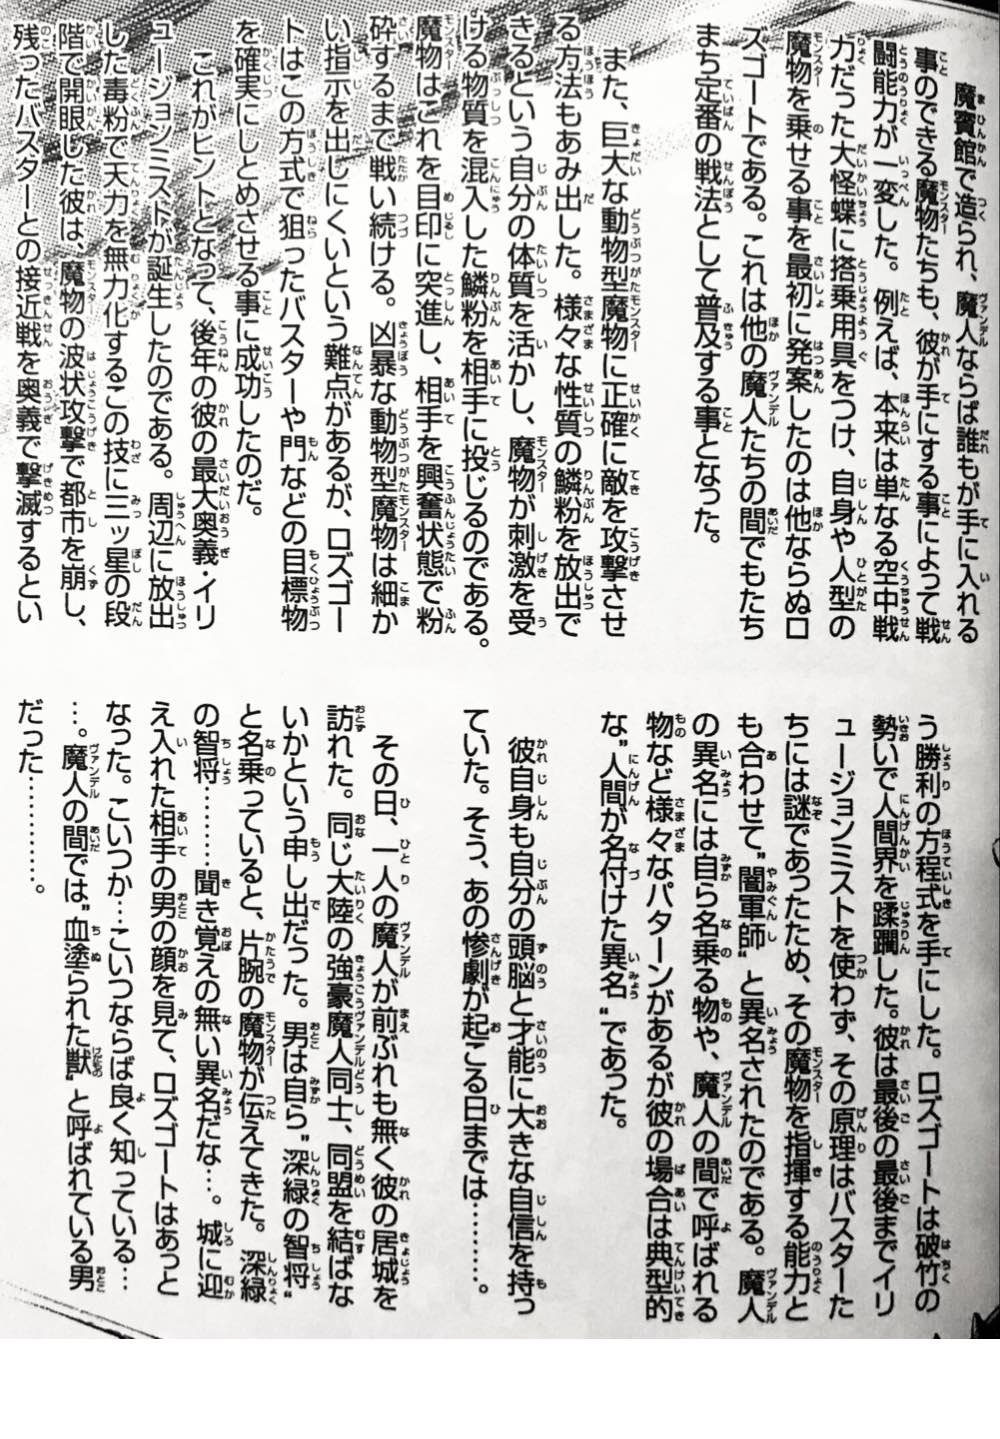 魔賓館で造られ、魔人ならば誰もが手に入れる
事のできる魔物たちも、彼が手にする事によって戦
闘能力が一変した。例えば、本来は単なる空中戦
力だった大怪蝶に搭乗用具をつけ、自身や人型の
魔物を乗せる事を最初に発案したのは他ならぬロ
ズゴートである。これは他の魔人たちの間でもたち
まち定番の戦法として普及する事となった。
また、巨大な動物型魔物に正確に敵を攻撃させ
る方法もあみ出した。様々な性質の鱗粉を放出で
きるという自分の体質を活かし、魔物が刺激を受
ける物質を混入した鱗粉を相手に投じるのである。
魔物はこれを目印に突進し、相手を興奮状態で粉
砕するまで戦い続ける。凶暴な動物型魔物は細か
い指示を出しにくいという難点があるが、ロズゴー
トはこの方式で狙ったバスターや門などの目標物
を確実にしとめさせる事に成功したのだ。
これがヒントとなって、後年の彼の最大奥義・イリ
ュージョンミストが誕生したのである。周辺に放出
した毒粉で天力を無力化するこの技に三ッ星の段
階で開眼した彼は、魔物の波状攻撃で都市を崩し、
残ったバスターとの接近戦を奥義で撃滅するとい
う勝利の方程式を手にした。ロズゴートは破竹の
勢いで人間界を蹂躙した。彼は最後の最後までイリ
ュージョンミストを使わず、その原理はバスターた
ちには謎であったため、その魔物を指揮する能力と
も合わせて“闇軍師”と異名されたのである。魔人
の異名には自ら名乗る物や、魔人の間で呼ばれる
物など様々なパターンがあるが彼の場合は典型的
な“人間が名付けた異名”であった。
彼自身も自分の頭脳と才能に大きな自信を持っ
ていた。そう、あの惨劇が起こる日までは………。
その日、一人の魔人が前ぶれも無く彼の居城を
訪れた。同じ大陸の強豪魔人同士、同盟を結ばな
いかという申し出だった。男は自ら“深緑の智将”
と名乗っていると、片腕の魔物が伝えてきた。深緑
の智将………聞き覚えの無い異名だな…。城に迎
え入れた相手の男の顔を見て、ロズゴートはあっと
なった。こいつか…こいつならば良く知っている…
…。魔人の間では“血塗られた獣”と呼ばれている男
だった…………。